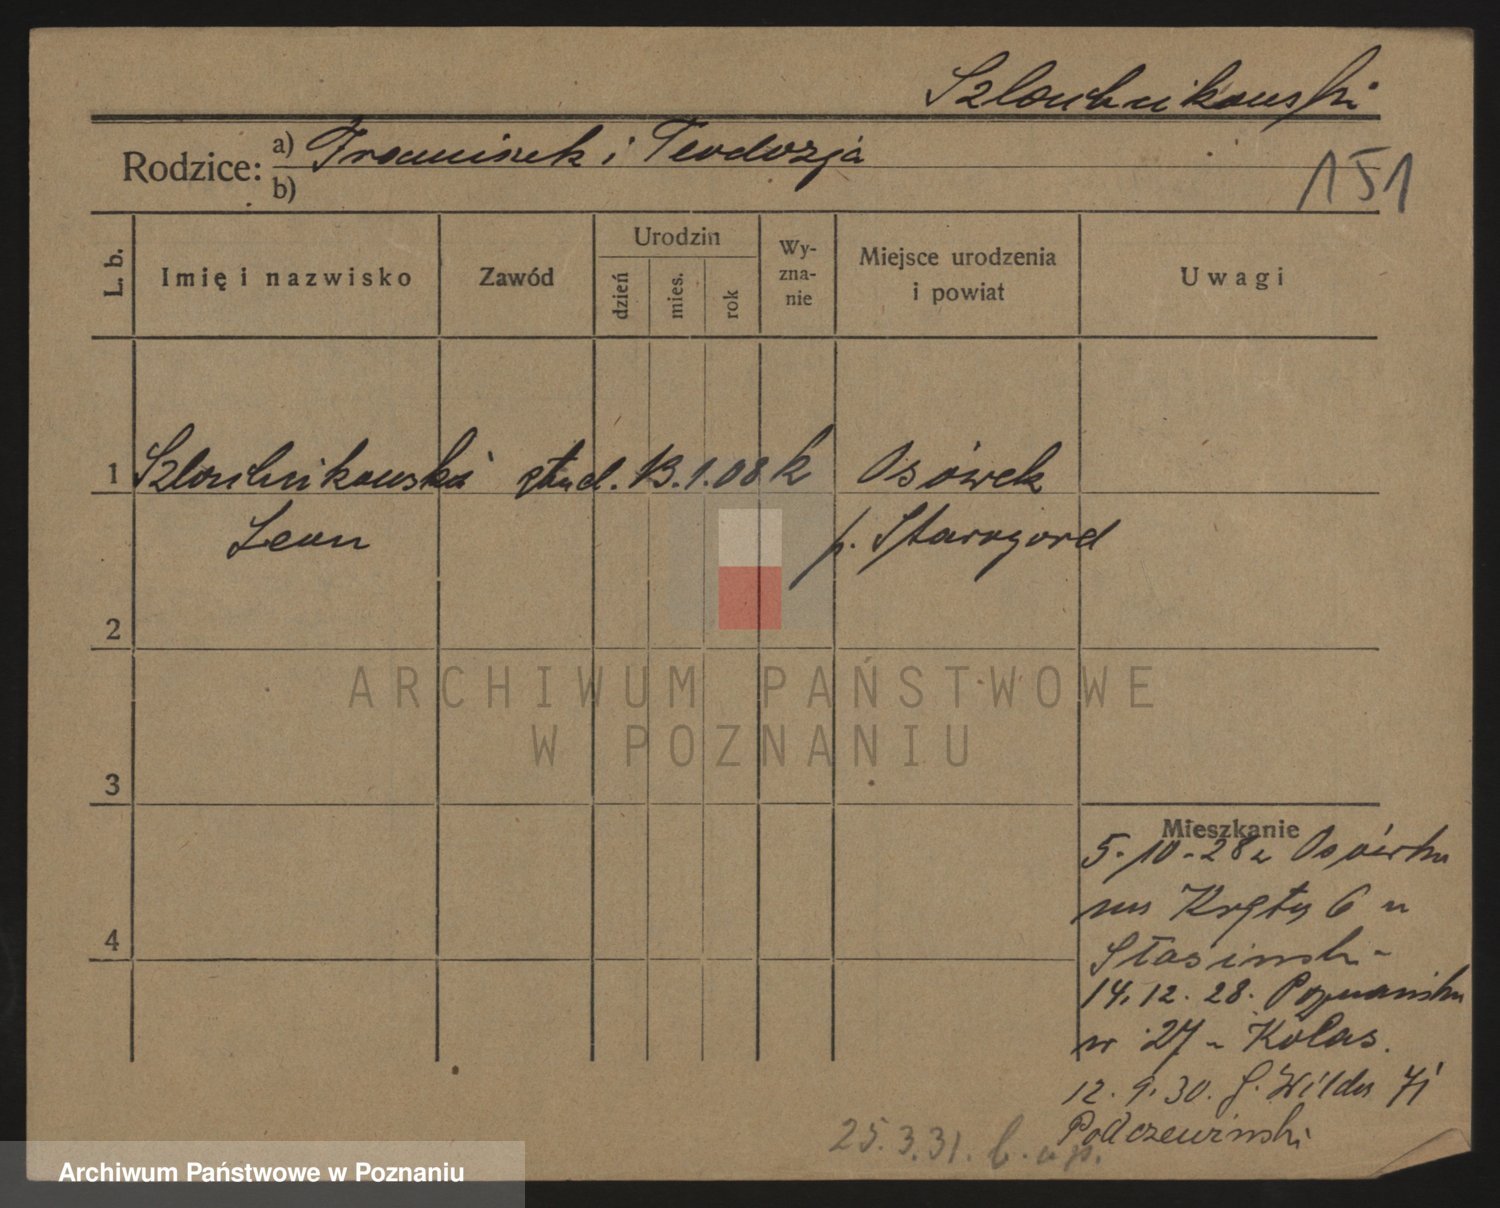 Szlouchnikowski
Rodzice: a) Franciszek i Teodozja
b)
151
L. b.
Imię i nazwisko
Zawód
Urodzin
dzień
mies.
rok
Wy-
zna-
nie
Miejsce urodzenia
i powiat
Uwagi
1 stud. 13. 1. 08 k Osówek
Leon p. Starogard
2
3
4
Mieszkanie
5.10.28 z Osówka
na Kręty 6 u
14.12.28. Poznańska
27 - Kolas.
12.9.30. G. Wilda 71
Podczewinski
25.3.31.
ARCHIWUM PAŃSTWOWE
W POZNANIU
Archiwum Państwowe w Poznaniu